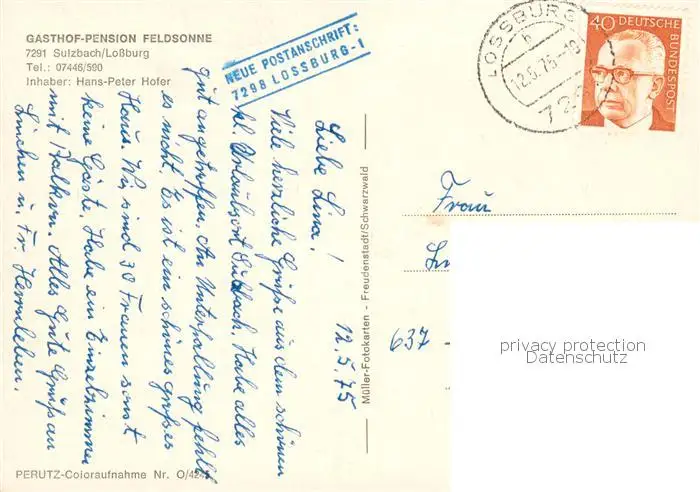 GASTHOF-PENSION FELDSONNE
7291 Sulzbach/Loßburg
Tel.: 07446/590
Inhaber: Hans-Peter Hofer
NEUE POSTANSCHRIFT:
7298 LOSSBURG-1
LOSSBURG
b
12.5.75-19
729
40 DEUTSCHE
BUNDESPOST
12.5.75
Liebe Lina!
Viele herzliche Grüße aus dem schönen
kl. Urlaubsort Sulzbach. Habe alles
gut angetroffen. An Unterhaltung fehlt
es nicht. Es ist ein schönes großes
Haus. Wir sind 30 Frauen sonst
keine Gäste. Habe ein Einzelzimmer
mit Balkon. Alles Gute Grüß an
Linchen u. Fr. Herrnleben.
Müller-Fotokarten - Freudenstadt/Schwarzwald
Frau
637
privacy protection
Datenschutz
PERUTZ-Coloraufnahme Nr. O/424